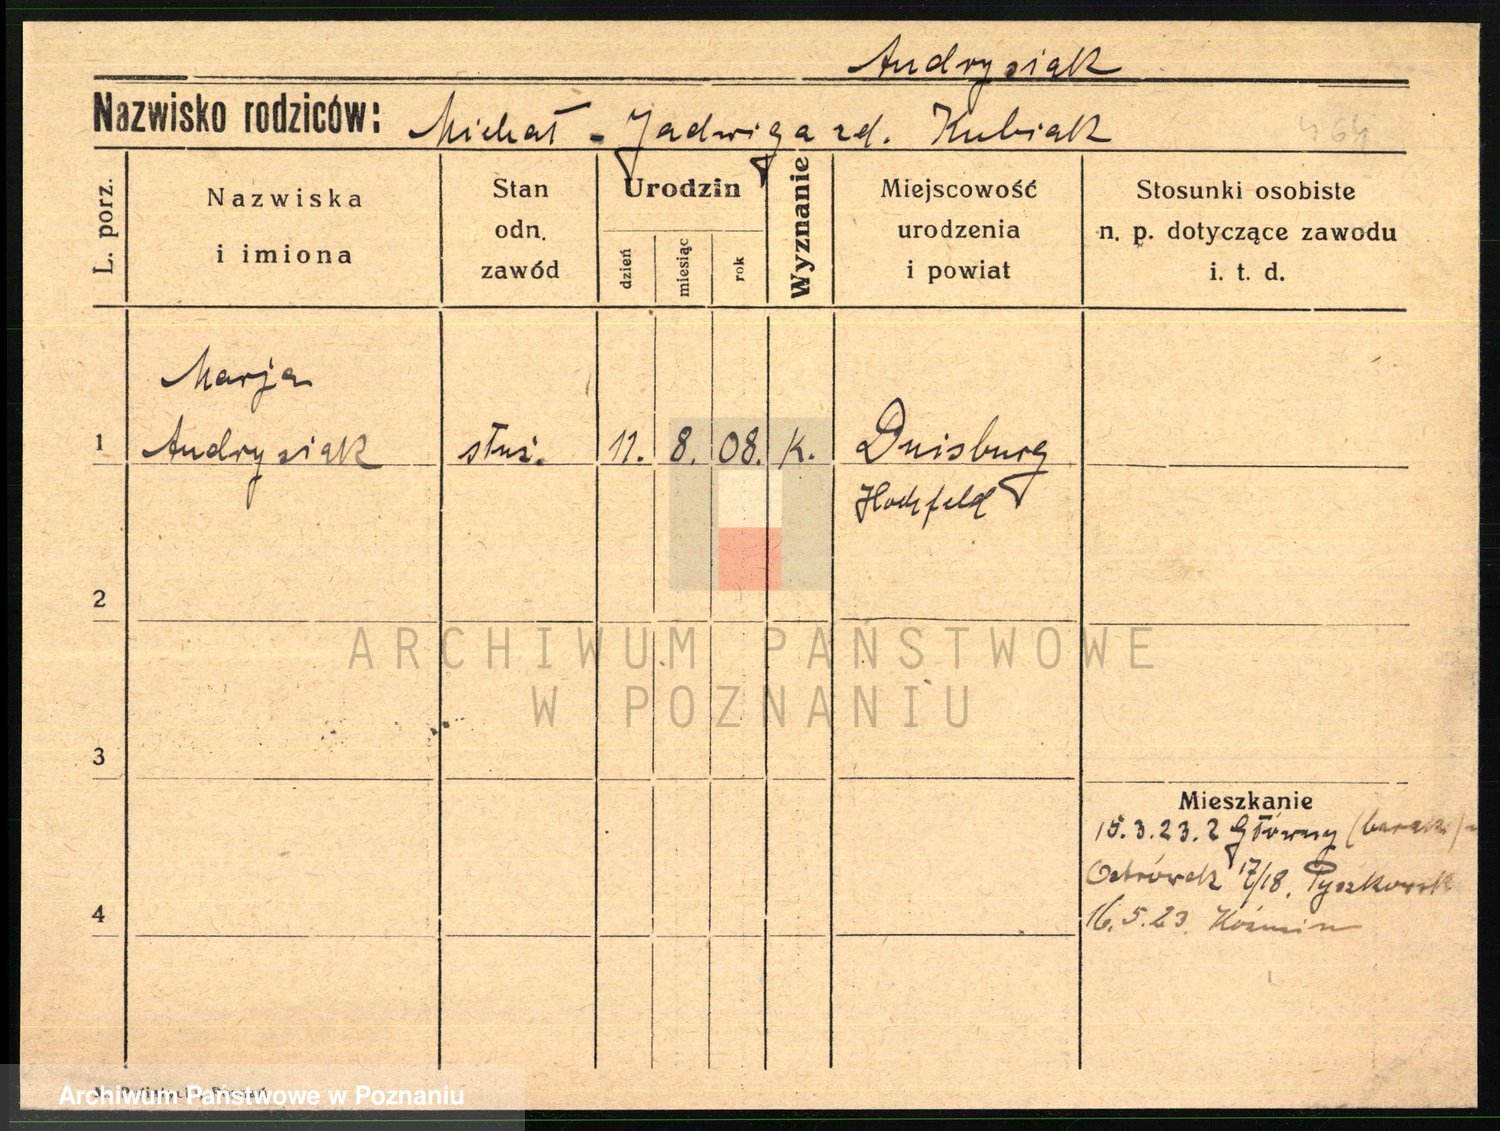 Andrysiak
Nazwisko rodziców: Michał - Jadwiga zd. Kubiak
L. porz.
Nazwiska
i imiona
Stan
odn.
zawód
Urodzin
dzień
miesiąc
rok
Wyznanie
Miejscowość
urodzenia
i powiat
Stosunki osobiste
n. p. dotyczące zawodu
i. t. d.
Marja
1 Andrysiak służ. 11. 8. 08. K. Duisburg
Hochfeld
2
ARCHIWUM PAŃSTWOWE
W POZNANIU
3
Mieszkanie
15.3.23. z Główny (barak)
Ostrówek 17/18. Pyszkowsk
4
16.5.23. Koźmin
Archiwum Państwowe w Poznaniu